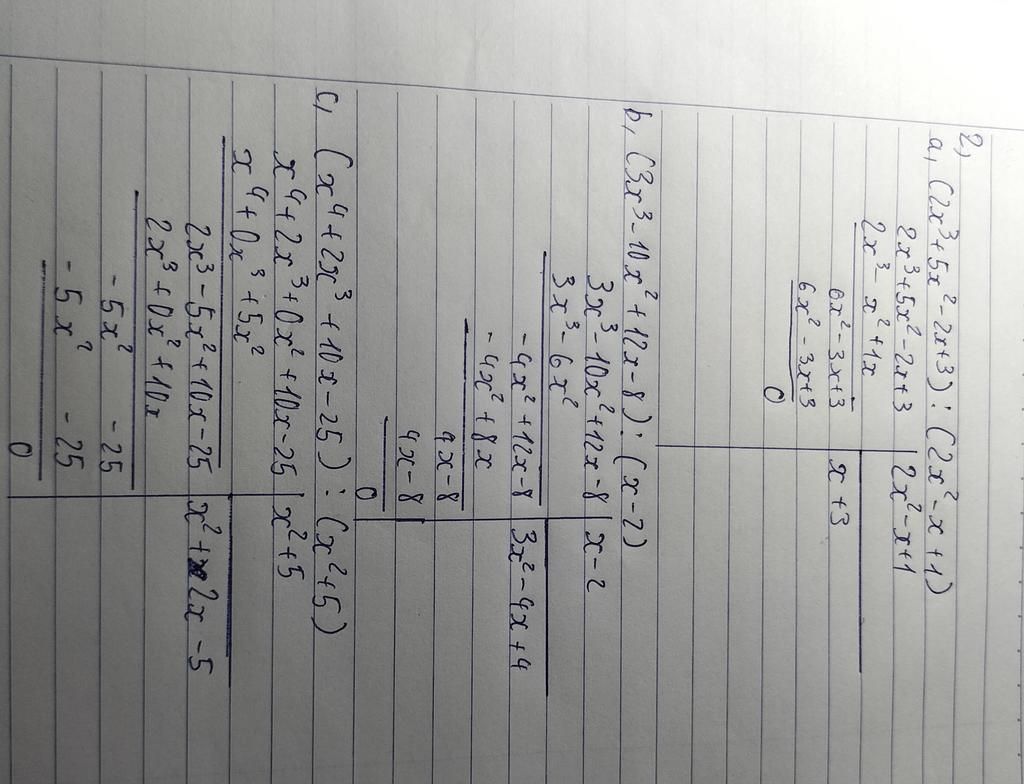 2,
a, (2x³+5x²-2x+3) : (2x²-x+1)
2x³+5x²-2x+3 | 2x²-x+1
2x³-x²+1x
6x²-3x+3 | x+3
6x²-3x+3
0
b, (3x³-10x²+12x-8) : (x-2)
3x³-10x²+12x-8 | x-2
3x³-6x²
-4x²+12x-8 | 3x²-4x+4
-4x²+8x
4x-8
4x-8
0
c, (x⁴+2x³+10x-25) : (x²+5)
x⁴+2x³+0x²+10x-25 | x²+5
x⁴+0x³+5x²
2x³-5x²+10x-25 | x²+2x-5
2x³+0x²+10x
-5x² -25
-5x² -25
0